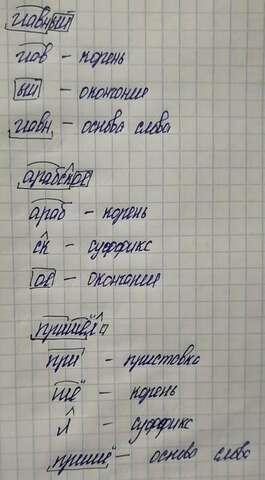 главный
глав - корень
ый - окончание
главн - основа слова
арабское
араб - корень
ск - суффикс
ое - окончание
пришёл
при - приставка
шё - корень
л - суффикс
пришё - основа слова